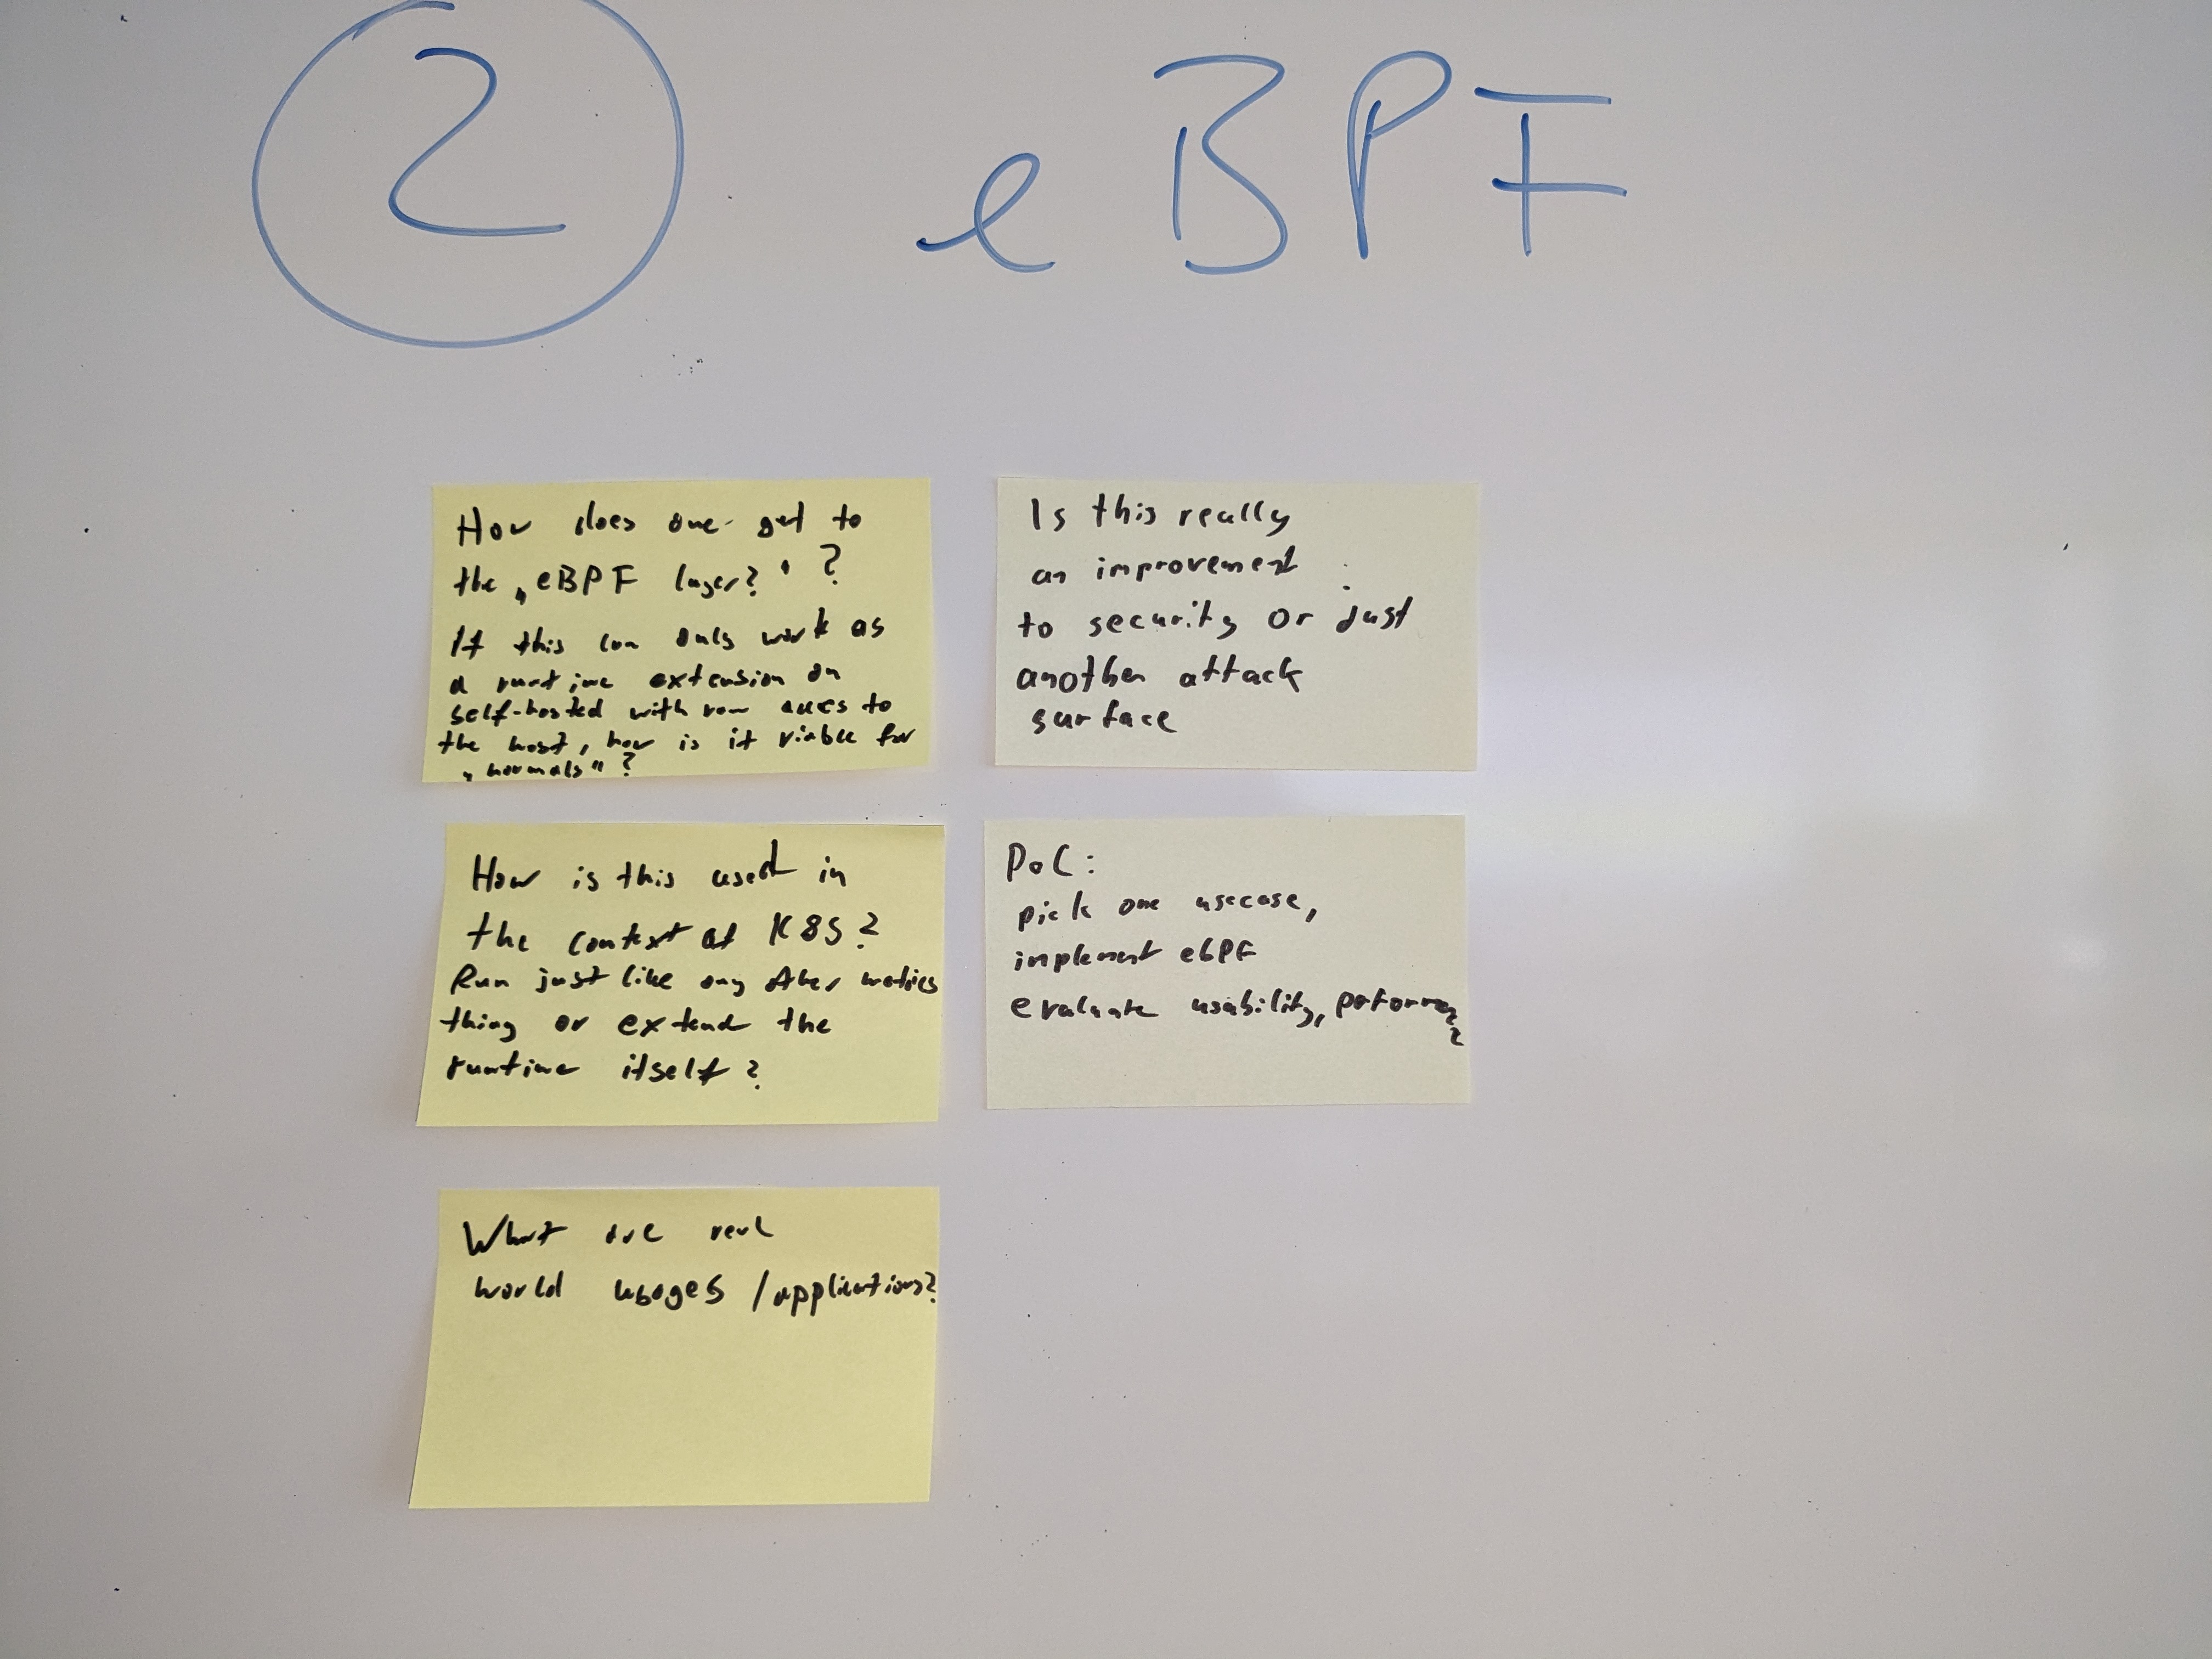 2 eBPF
How does one get to
the „eBPF layer?" ?
If this can only work as
a runtime extension on
self-hosted with raw access to
the host, how is it viable for
„normals" ?
Is this really
an improvement
to security or just
another attack
surface
How is this used in
the context of K8S?
Run just like any other metrics
thing or extend the
runtime itself?
PoC:
pick one usecase,
implement ebPF
evaluate usability,
What are real
world usages / applications?